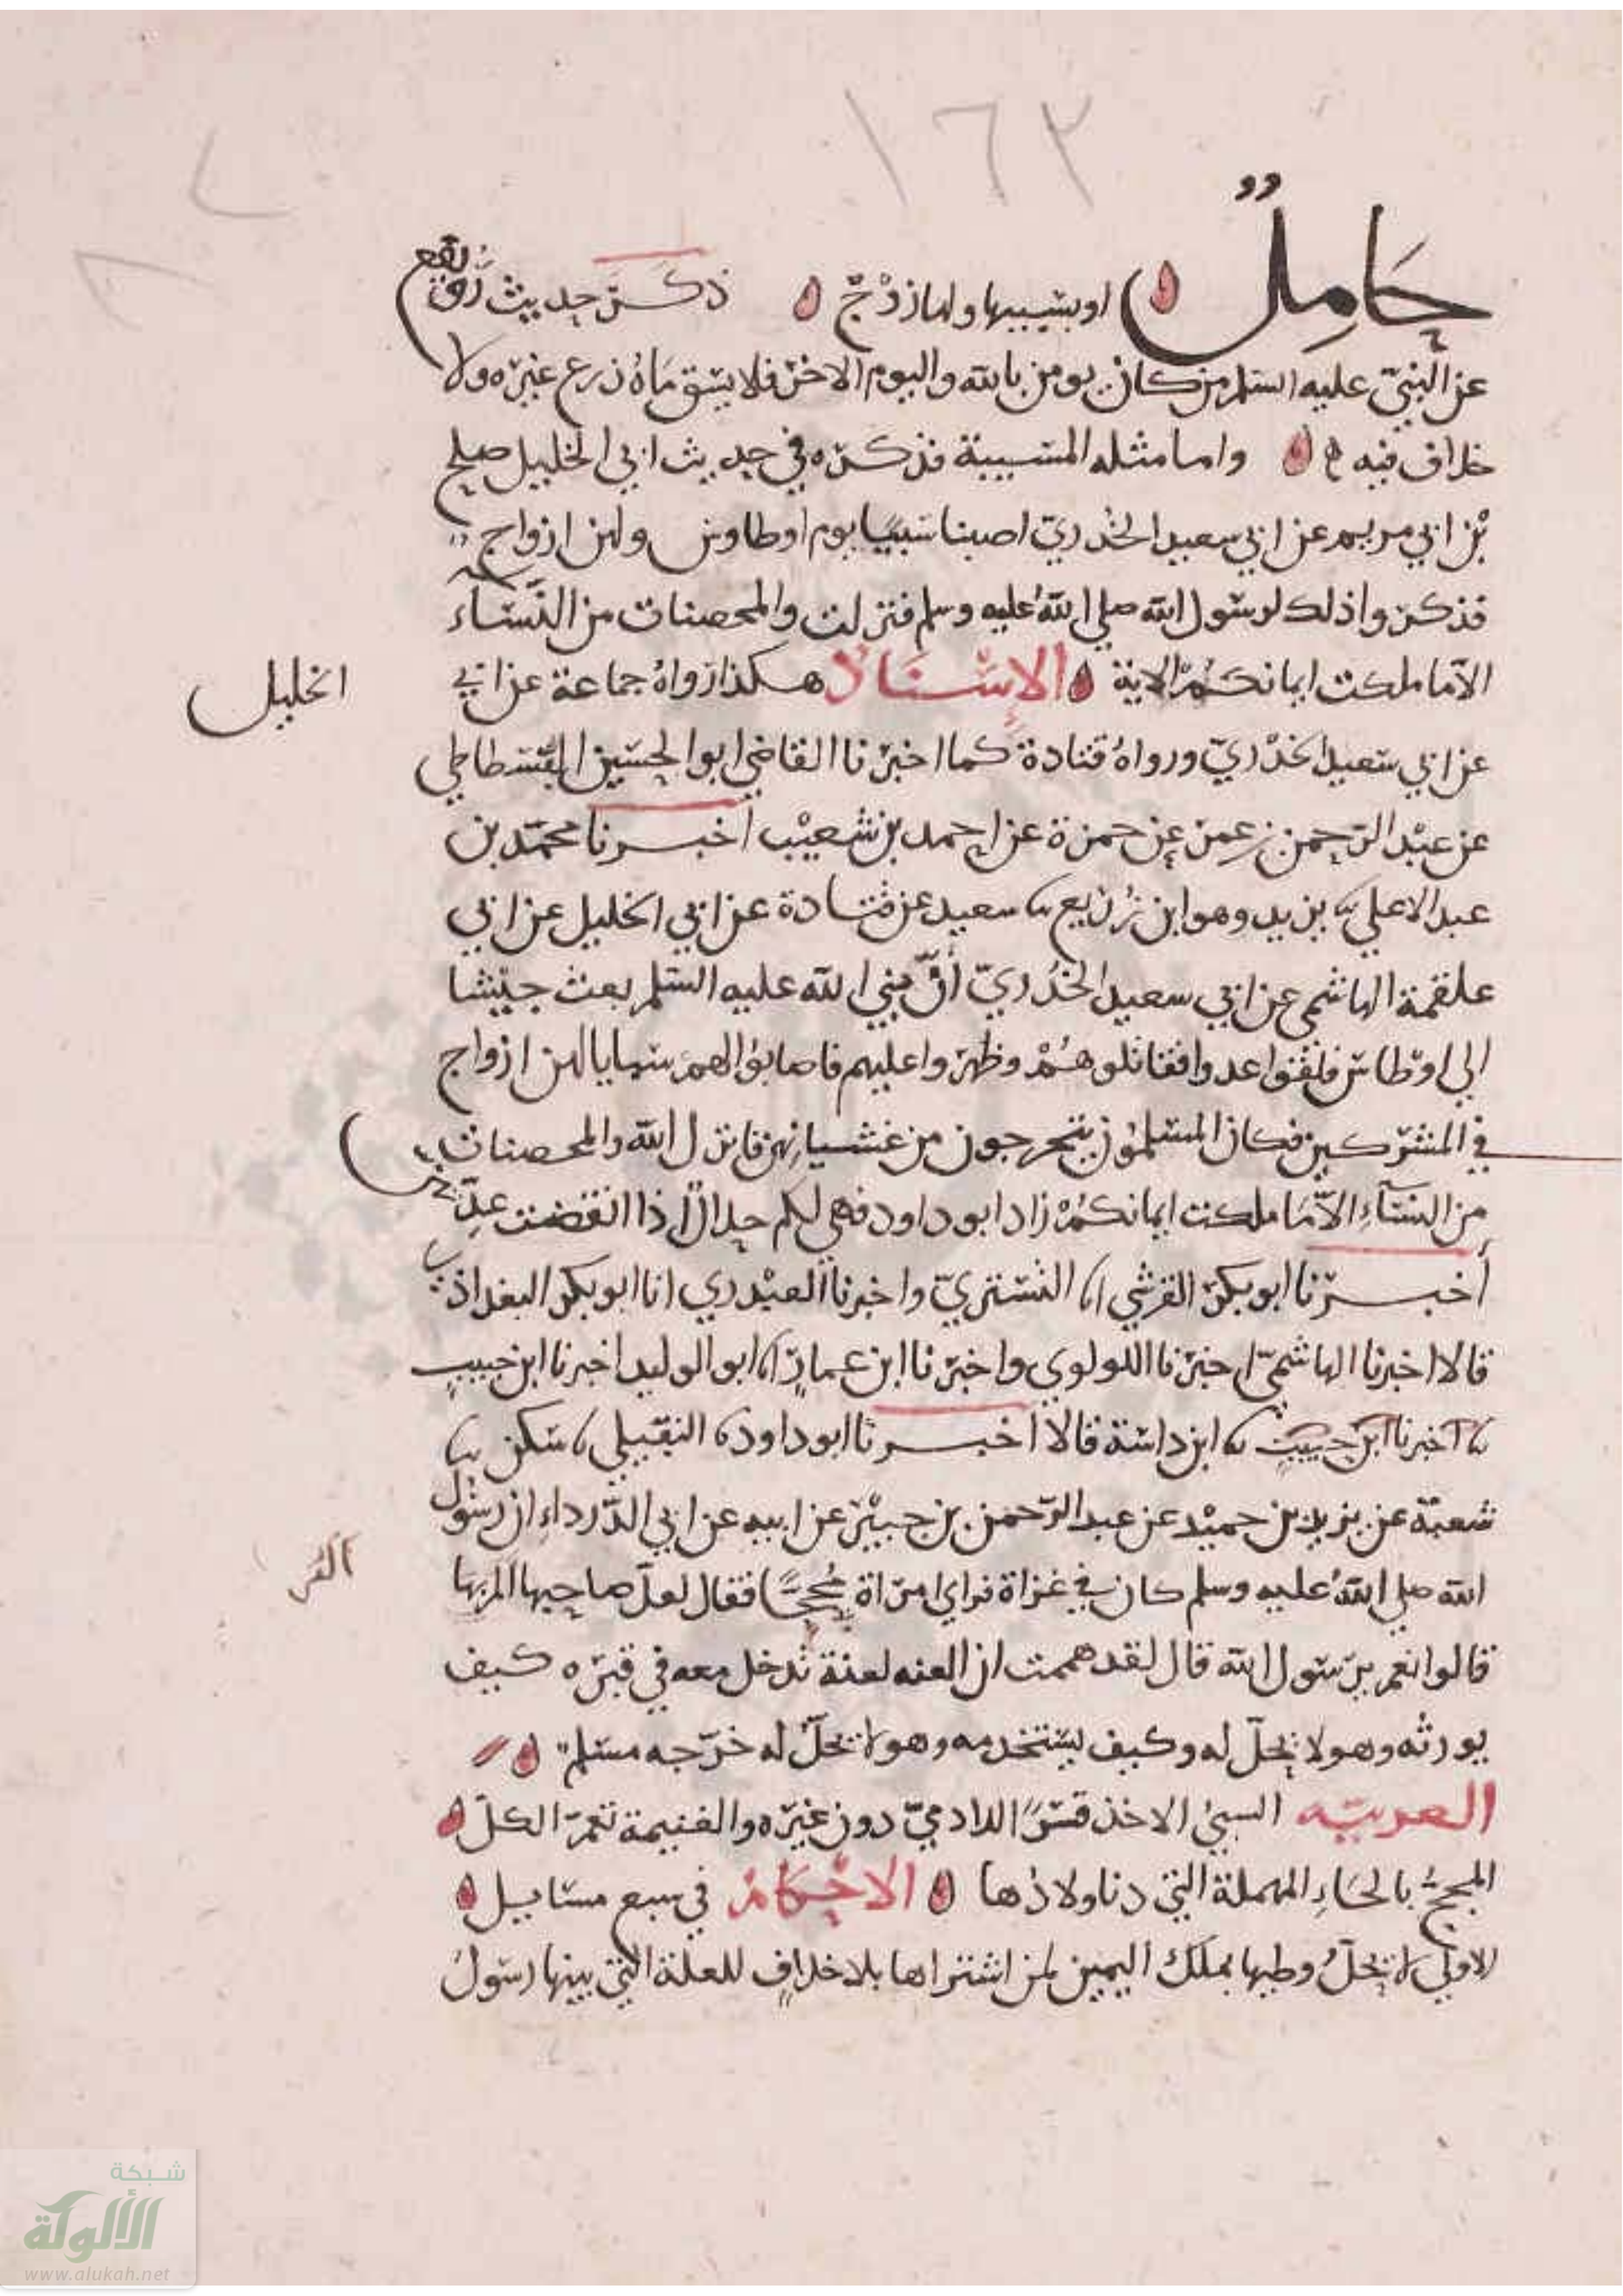 ١٦٢
حَامِلٌ او يسبيها ولها زوْجٌ ذكر حديث رُويفع
عن النبيّ عليه السلم من كان يومن بالله واليوم الاخر فلا يسق مَاهُ زرع غيره ولا
خلاف فيه واما مثله المسبية فذكره في حديث ابي الخليل صلح
بْن ابي مريم عن ابي سعيد الخدريّ اصبنا سَبيًا يوم اوطاوس ولهن ازواج
فذكروا ذلك لرسول الله صلي اللهُ عليه وسلم فنزلت والمحصنات من النّسَاء
الّا ما ملكت ايمانكُمْ الاية الاِسْنَادُ هكذا رَواهُ جماعة عن ابي
الخليل
عن ابي سَعيد الخدْريّ ورواهُ قتادة كما اخبرنا القاضي ابو الحسين القسطاطي
عن عبْد الرّحمن بن عمر عن حمزة عن احمد بن شعيْب اخبرنا محمّد بن
عبد الاعلي نا يزيد وهو ابن زُرَيع نا سعيد عن قتادة عن ابي الخليل عن ابي
علقمة الهاشمي عن ابي سعيد الخُدْريّ أنّ نبي الله عليه السلم بعث جيشا
الي اوطاسٍ فلقوا عدوا فقاتلوهُمْ وظهروا عليهم فاصابوا لهم سبايا لهن ازواج
في المشركين فكان المسلمُون يتحرجون من غشيانِهن فانزل الله والمحصنات
من النسَآءِ الّا مَا ملكت ايمانكُمْ زاد ابو داود فهي لكم حلالٌ اذا انقضت عِدّتهن
أخبرنا ابو بكر القرشي انا التستريّ واخبرنا العبْدري انا ابو بكر البغداذي
قالا اخبرنا الهاشميّ اخبرنا اللولوي واخبرنا ابن عمادٍ انا ابو الوليد اخبرنا ابن حبيبٍ
نا اخبرنا ابن حبيبٍ نا ابن داسَة قالا اخبرنا ابو داود نا النفيلي نا مسكن نا
شعبة عن يزيد بن حميْد عن عبد الرّحمن بن جبيْر عن ابيه عن ابي الدّرداءِ ان رسُول
الله صلي اللهُ عليه وسلم كان في غزاة فراي امراة مُجحًّا فقال لعلّ صاحبها المّ بها
قالوا نعم يرسول الله قال لقد هممت ان العنه لعنة تدخل معه في قبره كيف
يورثه وهو لا يحلّ له وكيف يستخدمه وهو لا يحلّ له خرّجه مسلم
العربيّه السبيُ الاخذ قسرًا للادميّ دون غيره والغنيمة تعمّ الكلّ
المجحُ بالحَاءِ المهملة التي دنا ولادُها الاحكام في سبع مسَايل
الاولي لا يحلّ وطيها بملك اليمين لمن اشتراها بلا خلافٍ للعلة التي بينها رسَولُ
شبكة
الألوكة
www.alukah.net